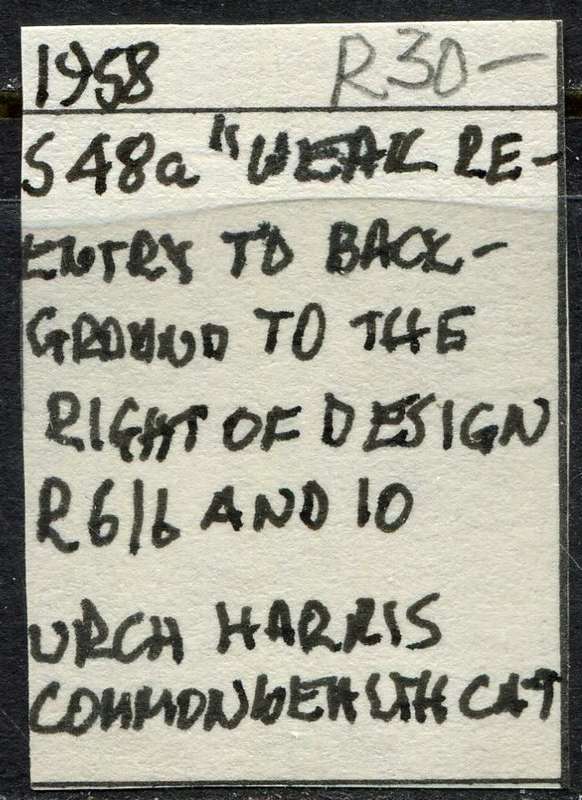 1958 R30—
S48a "WEAK RE-
ENTRY TO BACK-
GROUND TO THE
RIGHT OF DESIGN
R6/6 AND 10
URCH HARRIS
COMMONWEALTH CAT